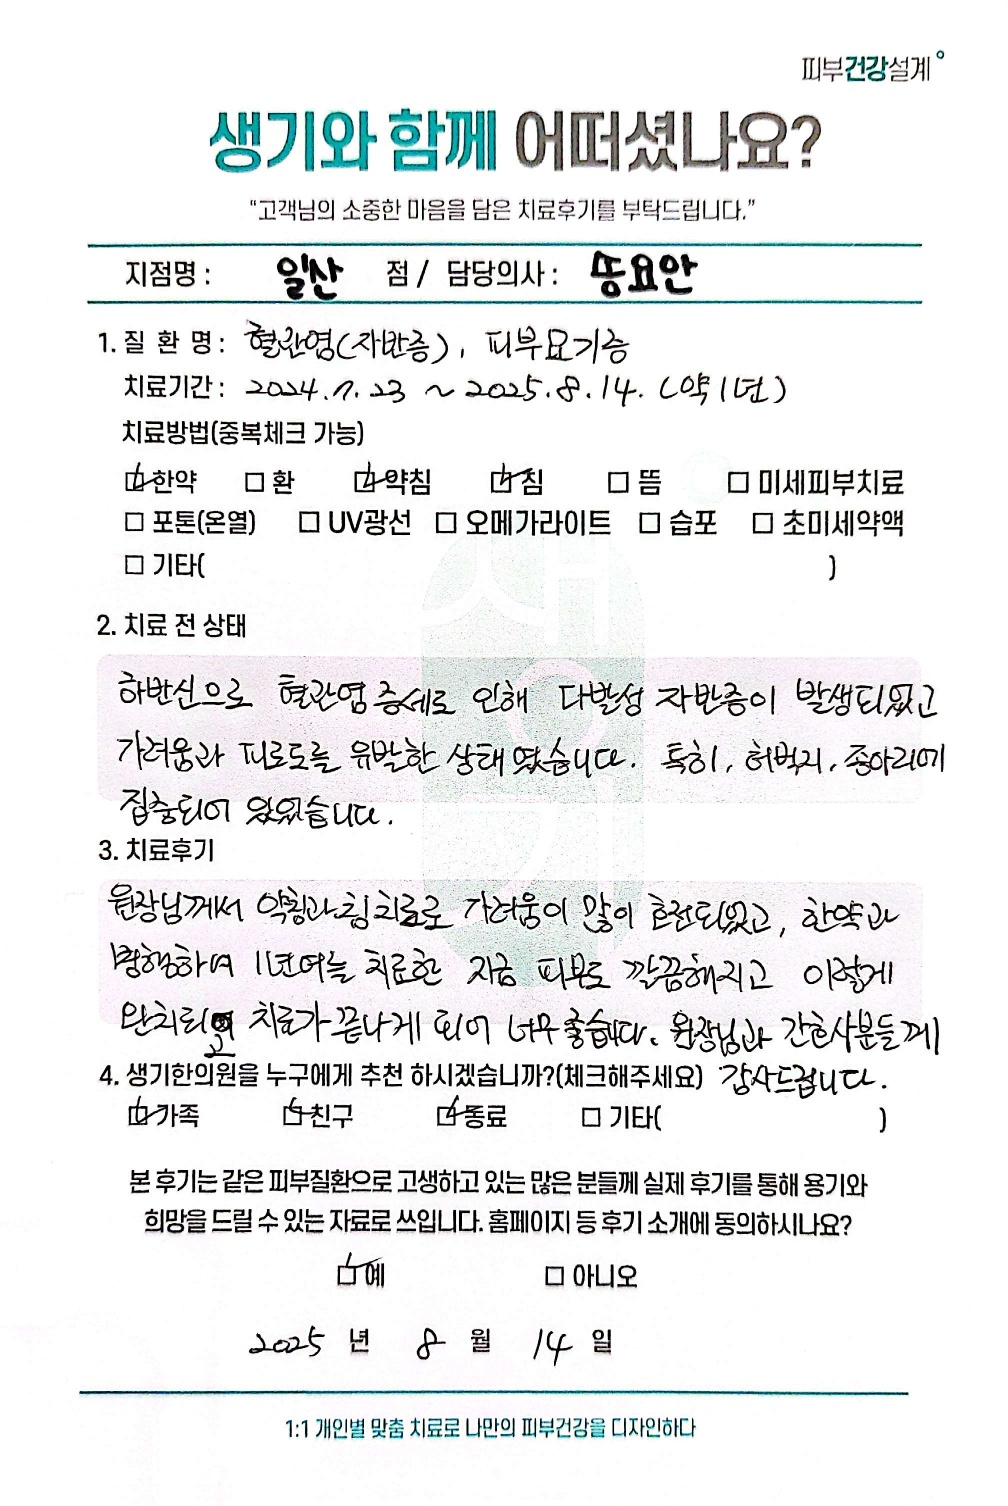 피부건강설계
생기와 함께 어떠셨나요?
“고객님의 소중한 마음을 담은 치료후기를 부탁드립니다.”
지점명 : 일산 점 / 담당의사 : 동요안
1. 질 환 명 : 혈관염(자반증), 피부묘기증
치료기간 : 2024.7.23 ~ 2025.8.14. (약 1년)
치료방법(중복체크 가능)
☑ 한약 □ 환 ☑ 약침 ☑ 침 □ 뜸 □ 미세피부치료
□ 포톤(온열) □ UV광선 □ 오메가라이트 □ 습포 □ 초미세약액
□ 기타( )
2. 치료 전 상태
하반신으로 혈관염 증세로 인해 다발성 자반증이 발생되었고
가려움과 피로도를 유발한 상태였습니다. 특히, 허벅지, 종아리에
집중되어 있었습니다.
3. 치료후기
원장님께서 약침과 침치료로 가려움이 많이 호전되었고, 한약과
병행하며 1년여를 치료한 지금 피부도 깔끔해지고 이렇게
완치되고 치료가 끝나게 되어 너무 좋습니다. 원장님과 간호사분들께
감사드립니다.
4. 생기한의원을 누구에게 추천 하시겠습니까?(체크해주세요)
☑ 가족 ☑ 친구 ☑ 동료 □ 기타( )
본 후기는 같은 피부질환으로 고생하고 있는 많은 분들께 실제 후기를 통해 용기와
희망을 드릴 수 있는 자료로 쓰입니다. 홈페이지 등 후기 소개에 동의하시나요?
☑ 예 □ 아니오
2025 년 8 월 14 일
1:1 개인별 맞춤 치료로 나만의 피부건강을 디자인하다
생기